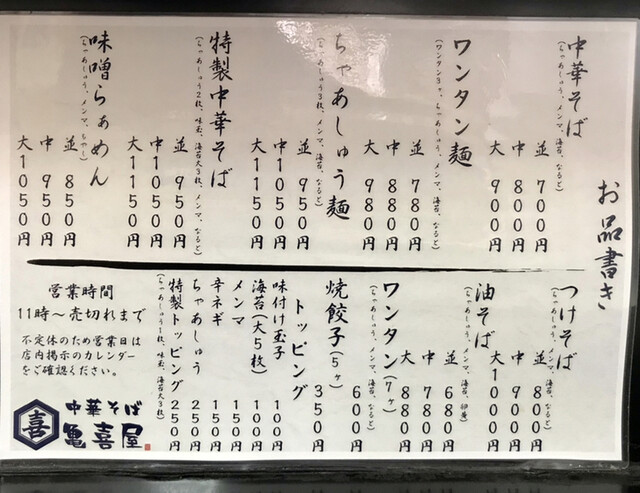 お品書き
中華そば
(ちゃあしゅう、メンマ、海苔、なると)
並 700円
中 800円
大 900円
ワンタン麺
(ワンタン3ヶ、ちゃあしゅう、メンマ、海苔、なると)
並 780円
中 880円
大 980円
ちゃあしゅう麺
(ちゃあしゅう3枚、メンマ、海苔、なると)
並 950円
中 1050円
大 1150円
特製中華そば
(ちゃあしゅう2枚、味玉、海苔大3枚、メンマ、なると)
並 950円
中 1050円
大 1150円
味噌らぁめん
(ちゃあしゅう、メンマ、もやし)
並 850円
中 950円
大 1050円
つけそば
(ちゃあしゅう、メンマ、海苔、なると)
並 800円
中 900円
大 1000円
油そば
(ちゃあしゅう、メンマ、海苔、
並 680円
中 780円
大 880円
ワンタン(7ヶ)
(ちゃあしゅう、メンマ、海苔、なると)
600円
焼餃子(5ヶ)
350円
トッピング
味付け玉子 100円
海苔(大5枚) 100円
メンマ 150円
辛ネギ 150円
ちゃあしゅう 250円
特製トッピング 250円
(ちゃあしゅう1枚、味玉、海苔大3枚)
営業時間
11時～売切れまで
不定休のため営業日は
店内掲示のカレンダー
をご確認ください。
喜
中華そば
亀喜屋